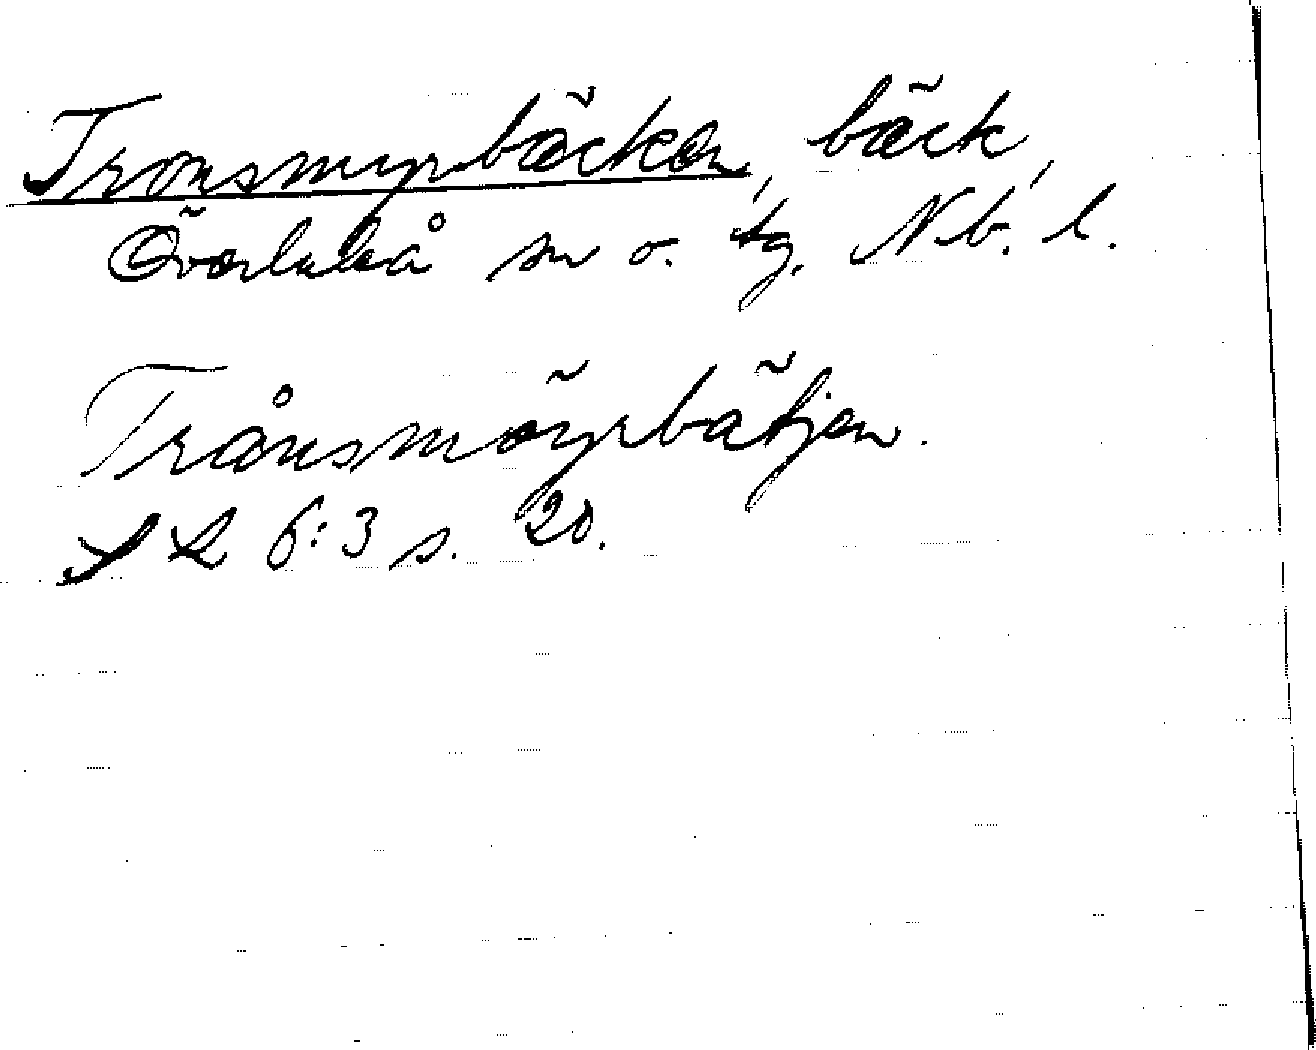 Tronsmyrbäcken, bäck,
Överluleå sn o. tg, Nb. l.
Trånsmöyrbätjen.
SL 6:3 s. 20.